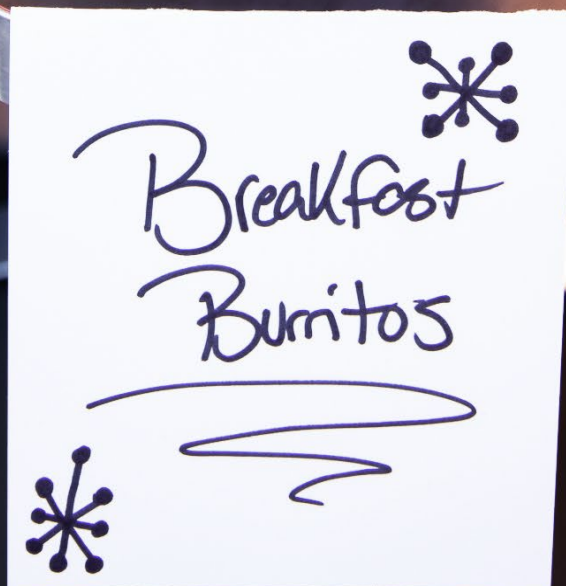 Breakfast
Burritos